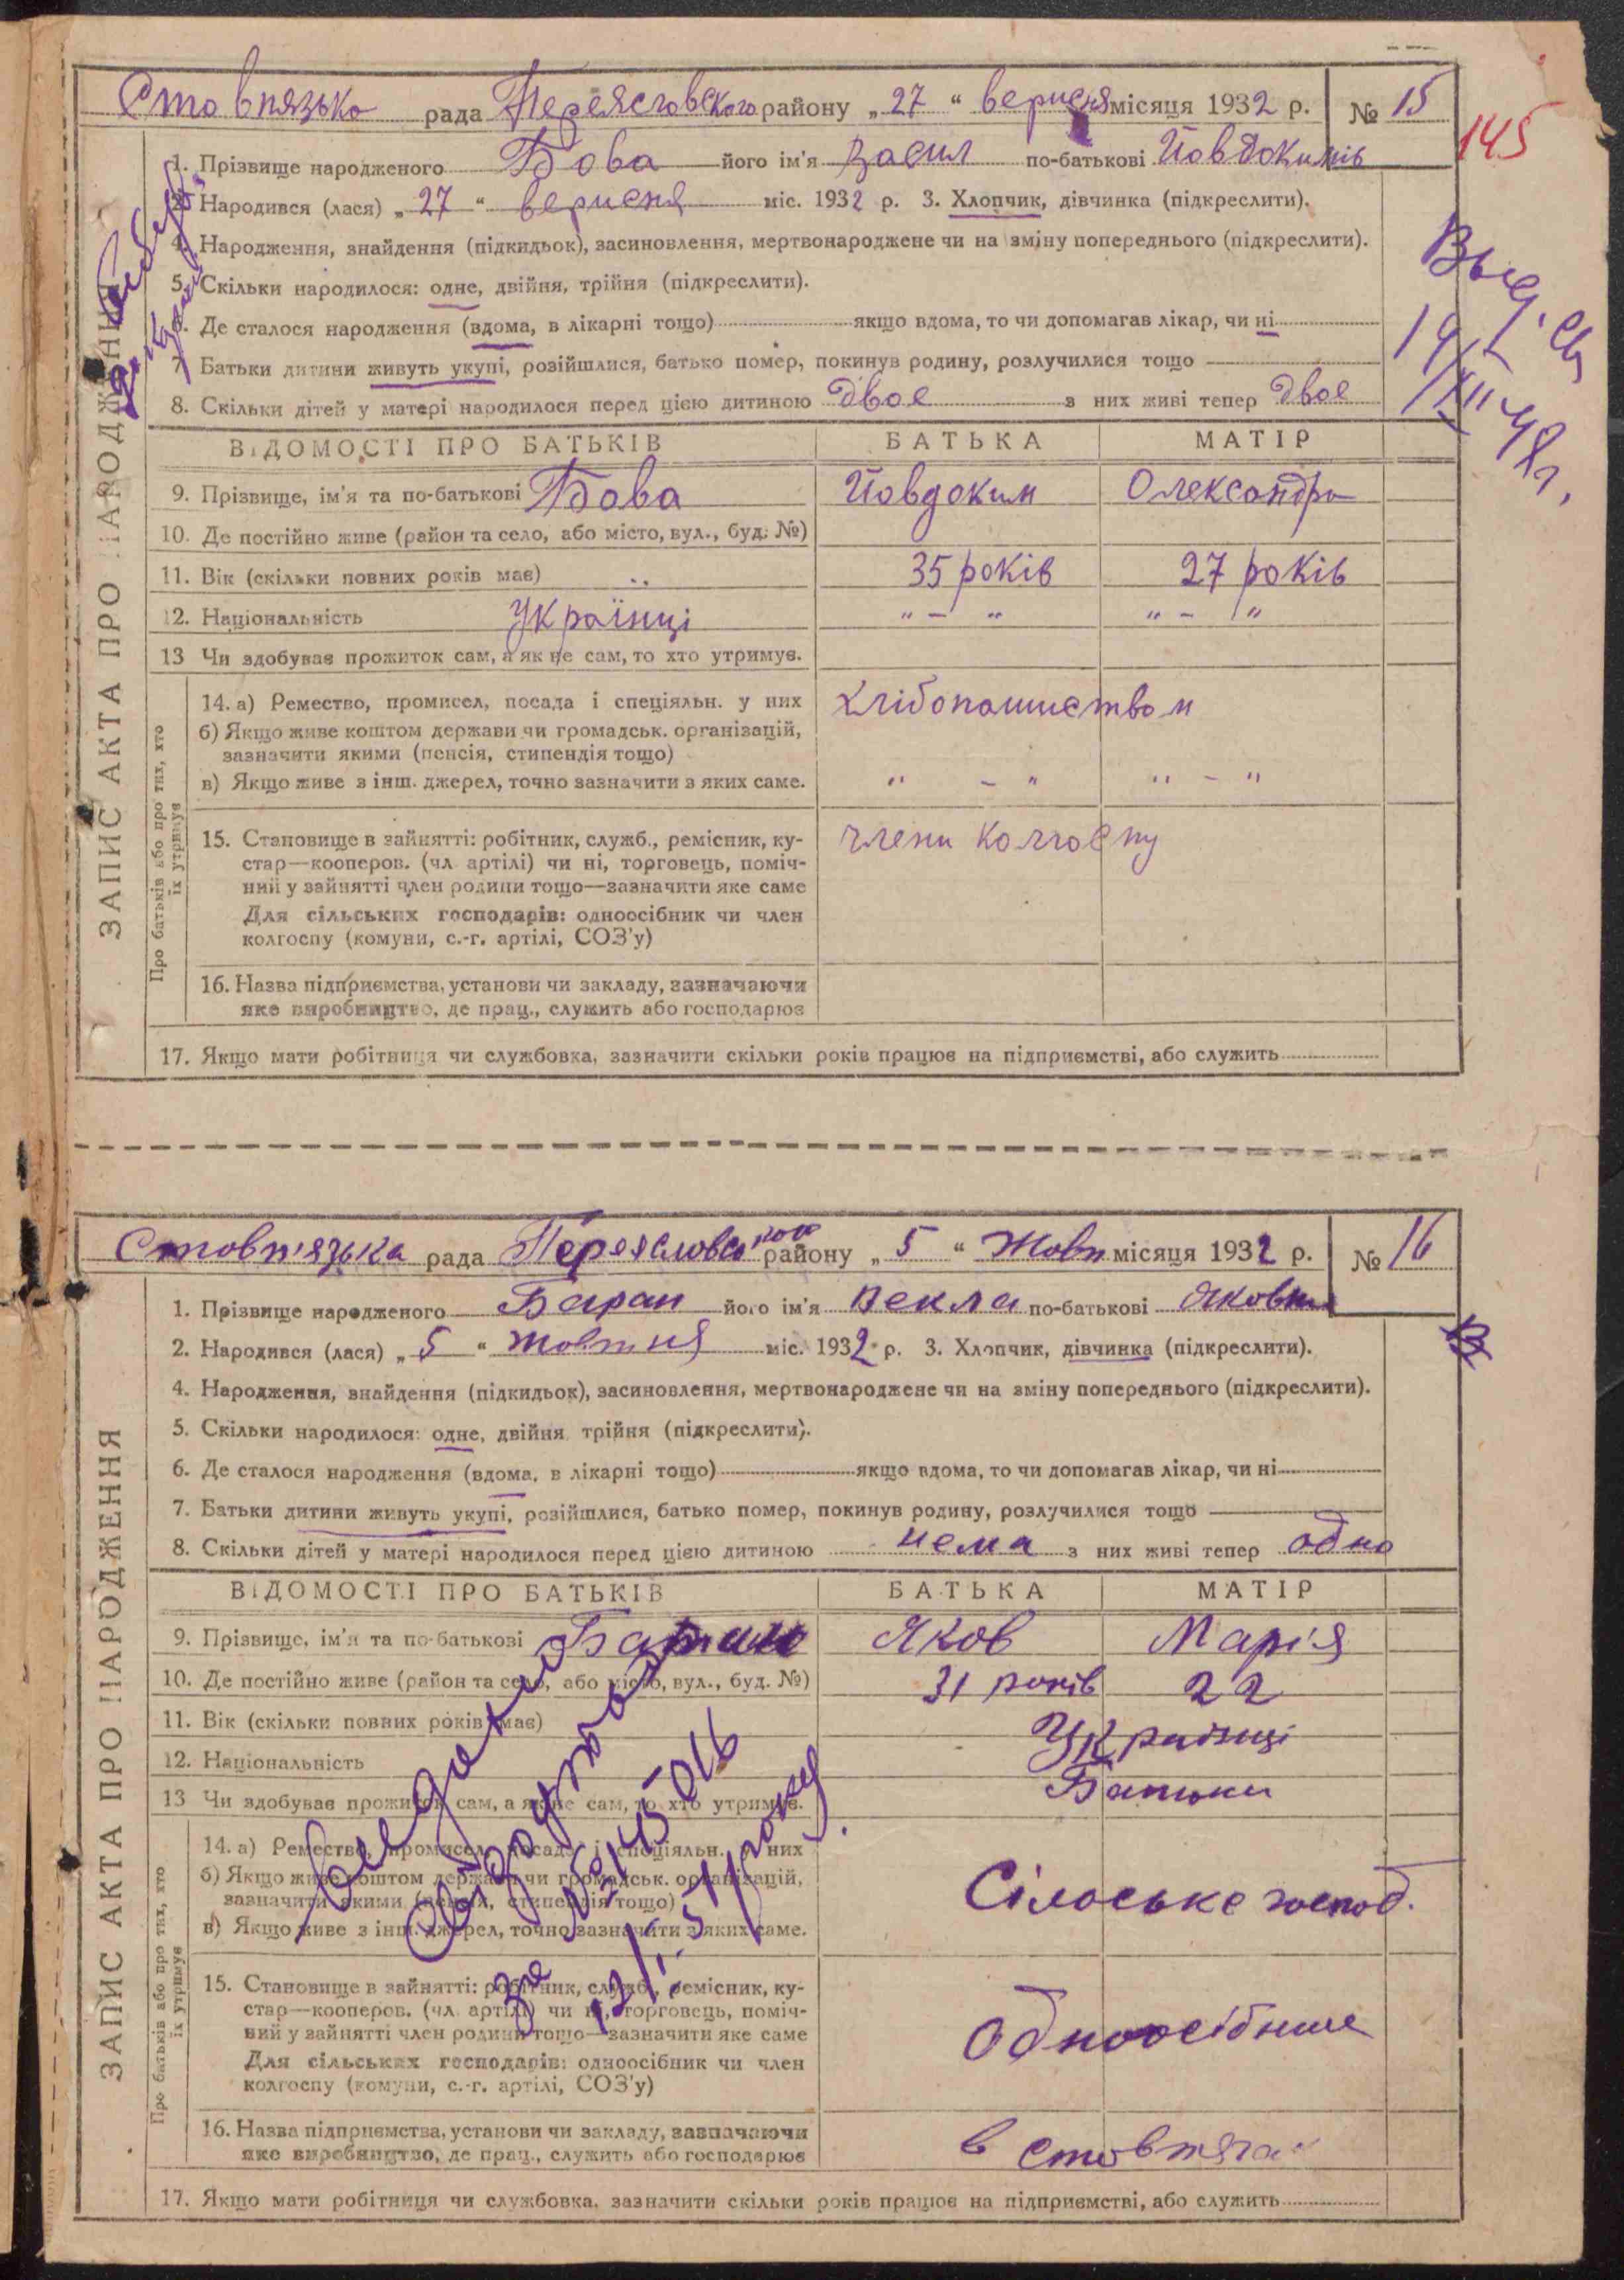 Стовпязько рада Переяславского району „27“ вересня місяця 1932 р. № 15
145
1. Прізвище народженого Бова його ім'я Васил по-батькові Йовдокимів
2. Народився (лася) „27“ вересня міс. 1932 р. 3. Хлопчик, дівчинка (підкреслити).
4. Народження, знайдення (підкидьок), засиновлення, мертвонароджене чи на зміну попереднього (підкреслити).
5. Скільки народилося: одне, двійня, трійня (підкреслити).
6. Де сталося народження (вдома, в лікарні тощо) якщо вдома, то чи допомагав лікар, чи ні
7. Батьки дитини живуть укупі, розійшлися, батько помер, покинув родину, розлучилися тощо
8. Скільки дітей у матері народилося перед цією дитиною двоє з них живі тепер двоє
ВІДОМОСТІ ПРО БАТЬКІВ БАТЬКА МАТІР
9. Прізвище, ім'я та по-батькові Бова Йовдоким Олександра
10. Де постійно живе (район та село, або місто, вул., буд. №)
11. Вік (скільки повних років має) 35 років 27 років
12. Національність Українці „ – “ „ – “
13 Чи здобував прожиток сам, а як не сам, то хто утримув.
14. а) Ремество, промисел, посада і спеціяльн. у них Хлібопашиством
б) Якщо живе коштом держави чи громадськ. організацій,
зазначити якими (пенсія, стипендія тощо)
в) Якщо живе з інш. джерел, точно зазначити з яких саме. „ – “ „ – “
15. Становище в зайнятті: робітник, служб., ремісник, ку- члени колгоспу
стар—кооперов. (чл артілі) чи ні, торговець, поміч-
ний у зайнятті член родини тощо—зазначити яке саме
Для сільських господарів: одноосібник чи член
колгоспу (комуни, с.-г. артілі, СОЗ'у)
16. Назва підприємства, установи чи закладу, зазначаючи
яке виробництво, де прац., служить або господарює
17. Якщо мати робітниця чи службовка, зазначити скільки років працює на підприємстві, або служить
ЗАПИС АКТА ПРО НАРОДЖЕННЯ
Про батьків або про тих, хто
їх утримує
Выд. св
19/XII 48г.
Стовп'язька рада Переясловського району „5“ Жовт місяця 1932 р. № 16
1. Прізвище народженого Баран його ім'я Векла по-батькові Яковна
2. Народився (лася) „5“ жовтня міс. 1932 р. 3. Хлопчик, дівчинка (підкреслити).
4. Народження, знайдення (підкидьок), засиновлення, мертвонароджене чи на зміну попереднього (підкреслити).
5. Скільки народилося: одне, двійня трійня (підкреслити).
6. Де сталося народження (вдома, в лікарні тощо) якщо вдома, то чи допомагав лікар, чи ні
7. Батьки дитини живуть укупі, розійшлися, батько помер, покинув родину, розлучилися тощо
8. Скільки дітей у матері народилося перед цією дитиною нема з них живі тепер одно
ВІДОМОСТІ ПРО БАТЬКІВ БАТЬКА МАТІР
9. Прізвище, ім'я та по-батькові Яков Марія
10. Де постійно живе (район та село, або місто, вул., буд. №) 31 років 22
11. Вік (скільки повних років має) Українці
12. Національність Батьки
13 Чи здобував прожиток сам, а як не сам, то хто утримув.
14. а) Ремество, промисел, посада і спеціяльн. у них
б) Якщо живе коштом держави чи громадськ. організацій, Сілоське господ.
зазначити якими (пенсія, стипендія тощо)
в) Якщо живе з інш. джерел, точно зазначити з яких саме.
15. Становище в зайнятті: робітник, служб., ремісник, ку-
стар—кооперов. (чл артілі) чи ні, торговець, поміч- одноосібник
ний у зайнятті член родини тощо—зазначити яке саме
Для сільських господарів: одноосібник чи член
колгоспу (комуни, с.-г. артілі, СОЗ'у)
16. Назва підприємства, установи чи закладу, зазначаючи
яке виробництво, де прац., служить або господарює в Стовпягах
17. Якщо мати робітниця чи службовка, зазначити скільки років працює на підприємстві, або служить
ЗАПИС АКТА ПРО НАРОДЖЕННЯ
Про батьків або про тих, хто
їх утримує
за № 145016
року